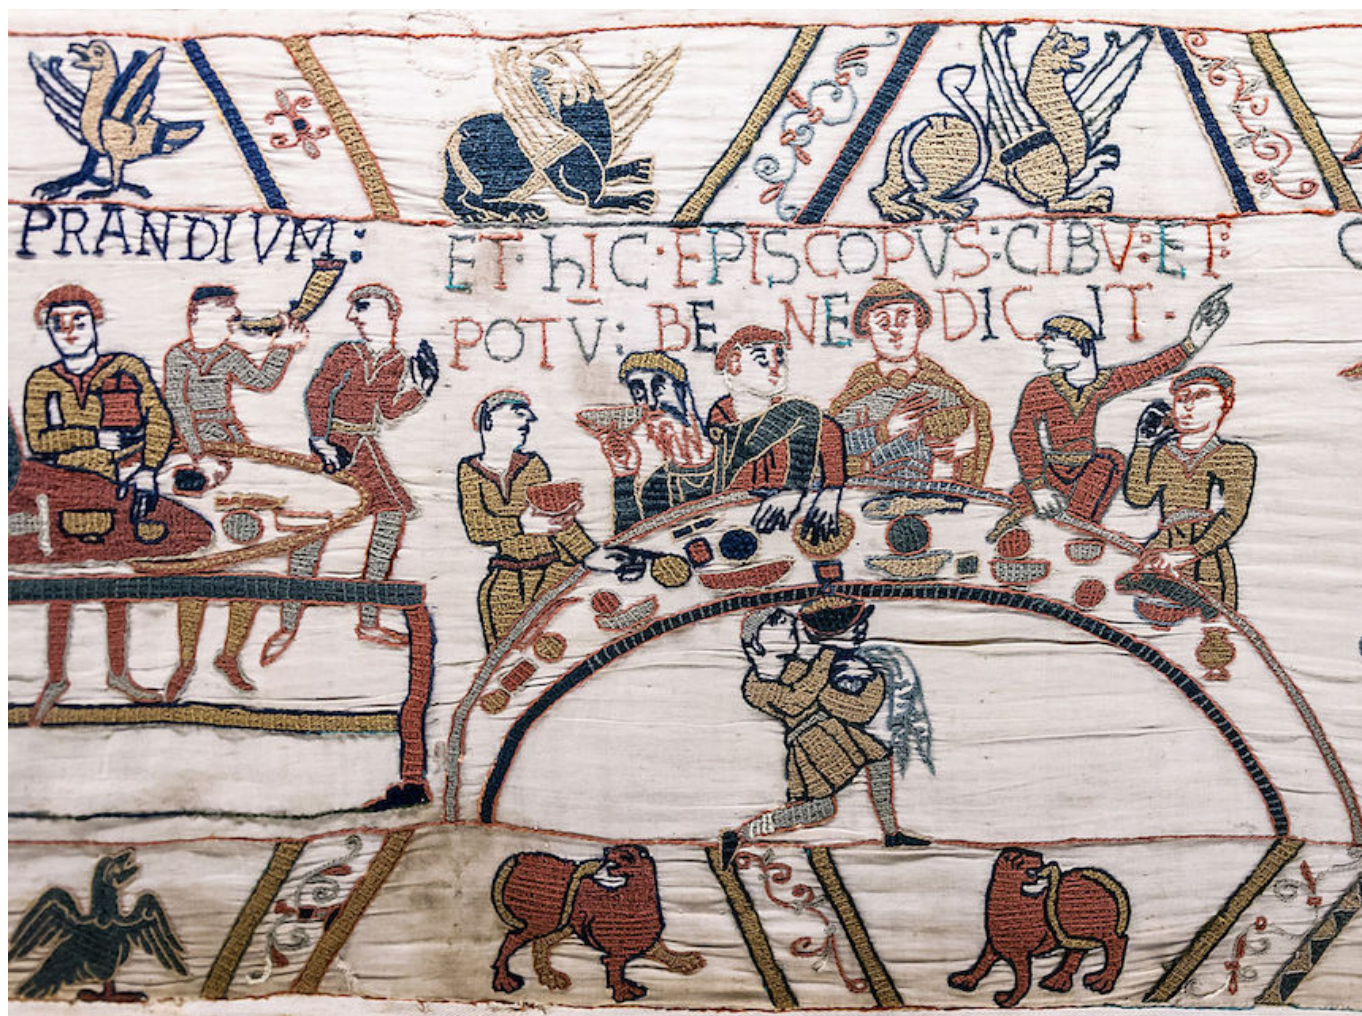 PRANDIVM:
ET·hIC·EPISCOPVS:CIBV:ET:
POTV̄: BE NE DIC IT·